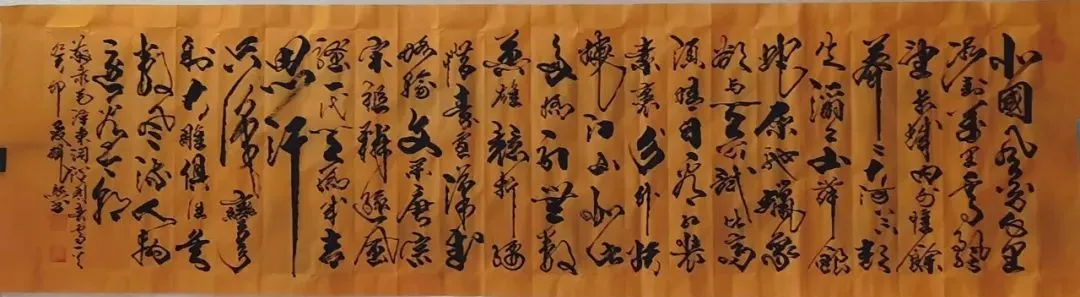 北國風光千里
冰封萬里雪飄
望長城內外惟餘
莽莽大河上下頓
失滔滔山舞銀
蛇原馳蠟象
欲与天公試比高
須晴日看紅裝
素裹分外妖
嬈江山如此
多嬌引無數
英雄競折腰
惜秦皇漢武
略輸文采唐宗
宋祖稍遜風
騷一代天驕成吉
思汗
只識彎弓
射大雕俱往矣
數風流人物
還看今朝
毛澤東詞沁園春雪一首
癸卯